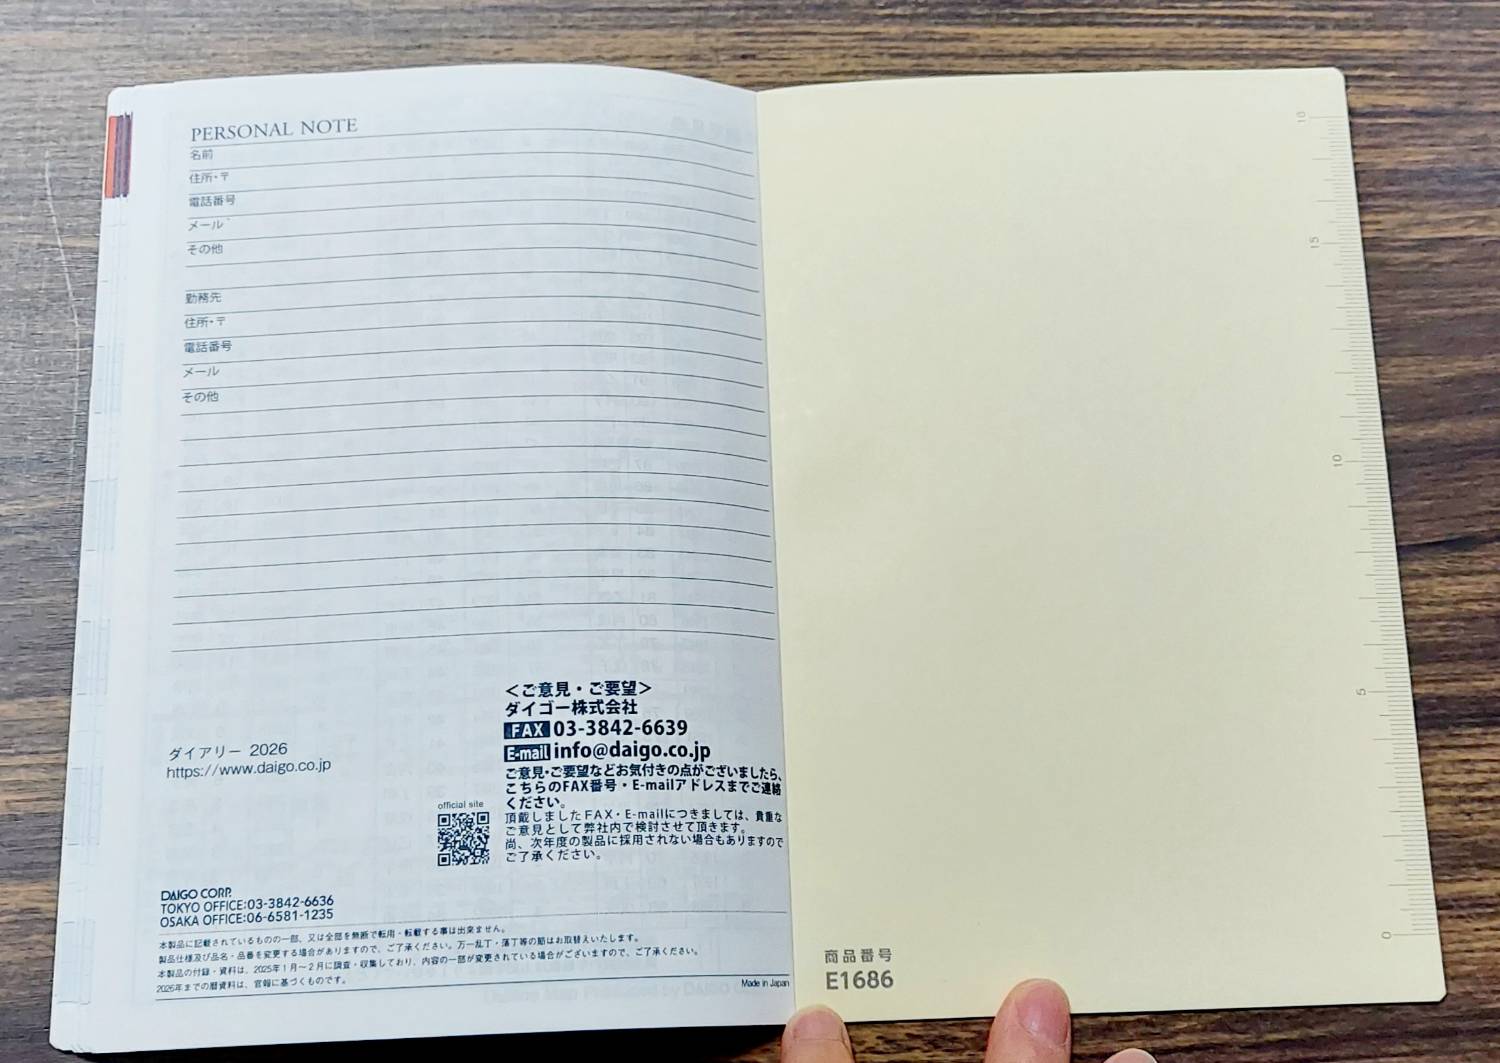 PERSONAL NOTE
名前
住所・〒
電話番号
メール
その他
勤務先
住所・〒
電話番号
メール
その他
ダイアリー 2026
https://www.daigo.co.jp
<ご意見・ご要望>
ダイゴー株式会社
FAX 03-3842-6639
E-mail info@daigo.co.jp
ご意見・ご要望などお気付きの点がございましたら、
こちらのFAX番号・E-mailアドレスまでご連絡
ください。
頂戴しましたFAX・E-mailにつきましては、貴重な
ご意見として弊社内で検討させて頂きます。
尚、次年度の製品に採用されない場合もありますので
ご了承ください。
official site
DAIGO CORP.
TOKYO OFFICE:03-3842-6636
OSAKA OFFICE:06-6581-1235
本製品に記載されているものの一部、又は全部を無断で転用・転載する事は出来ません。
製品仕様及び品名・品番を変更する場合がありますので、ご了承ください。万一乱丁・落丁等の節はお取替えいたします。
本製品の付録・資料は、2025年1月〜2月に調査・収集しており、内容の一部が変更されている場合がございますので、ご了承ください。
2026年までの暦資料は、官報に基づくものです。
Made in Japan
15
10
5
0
商品番号
E1686